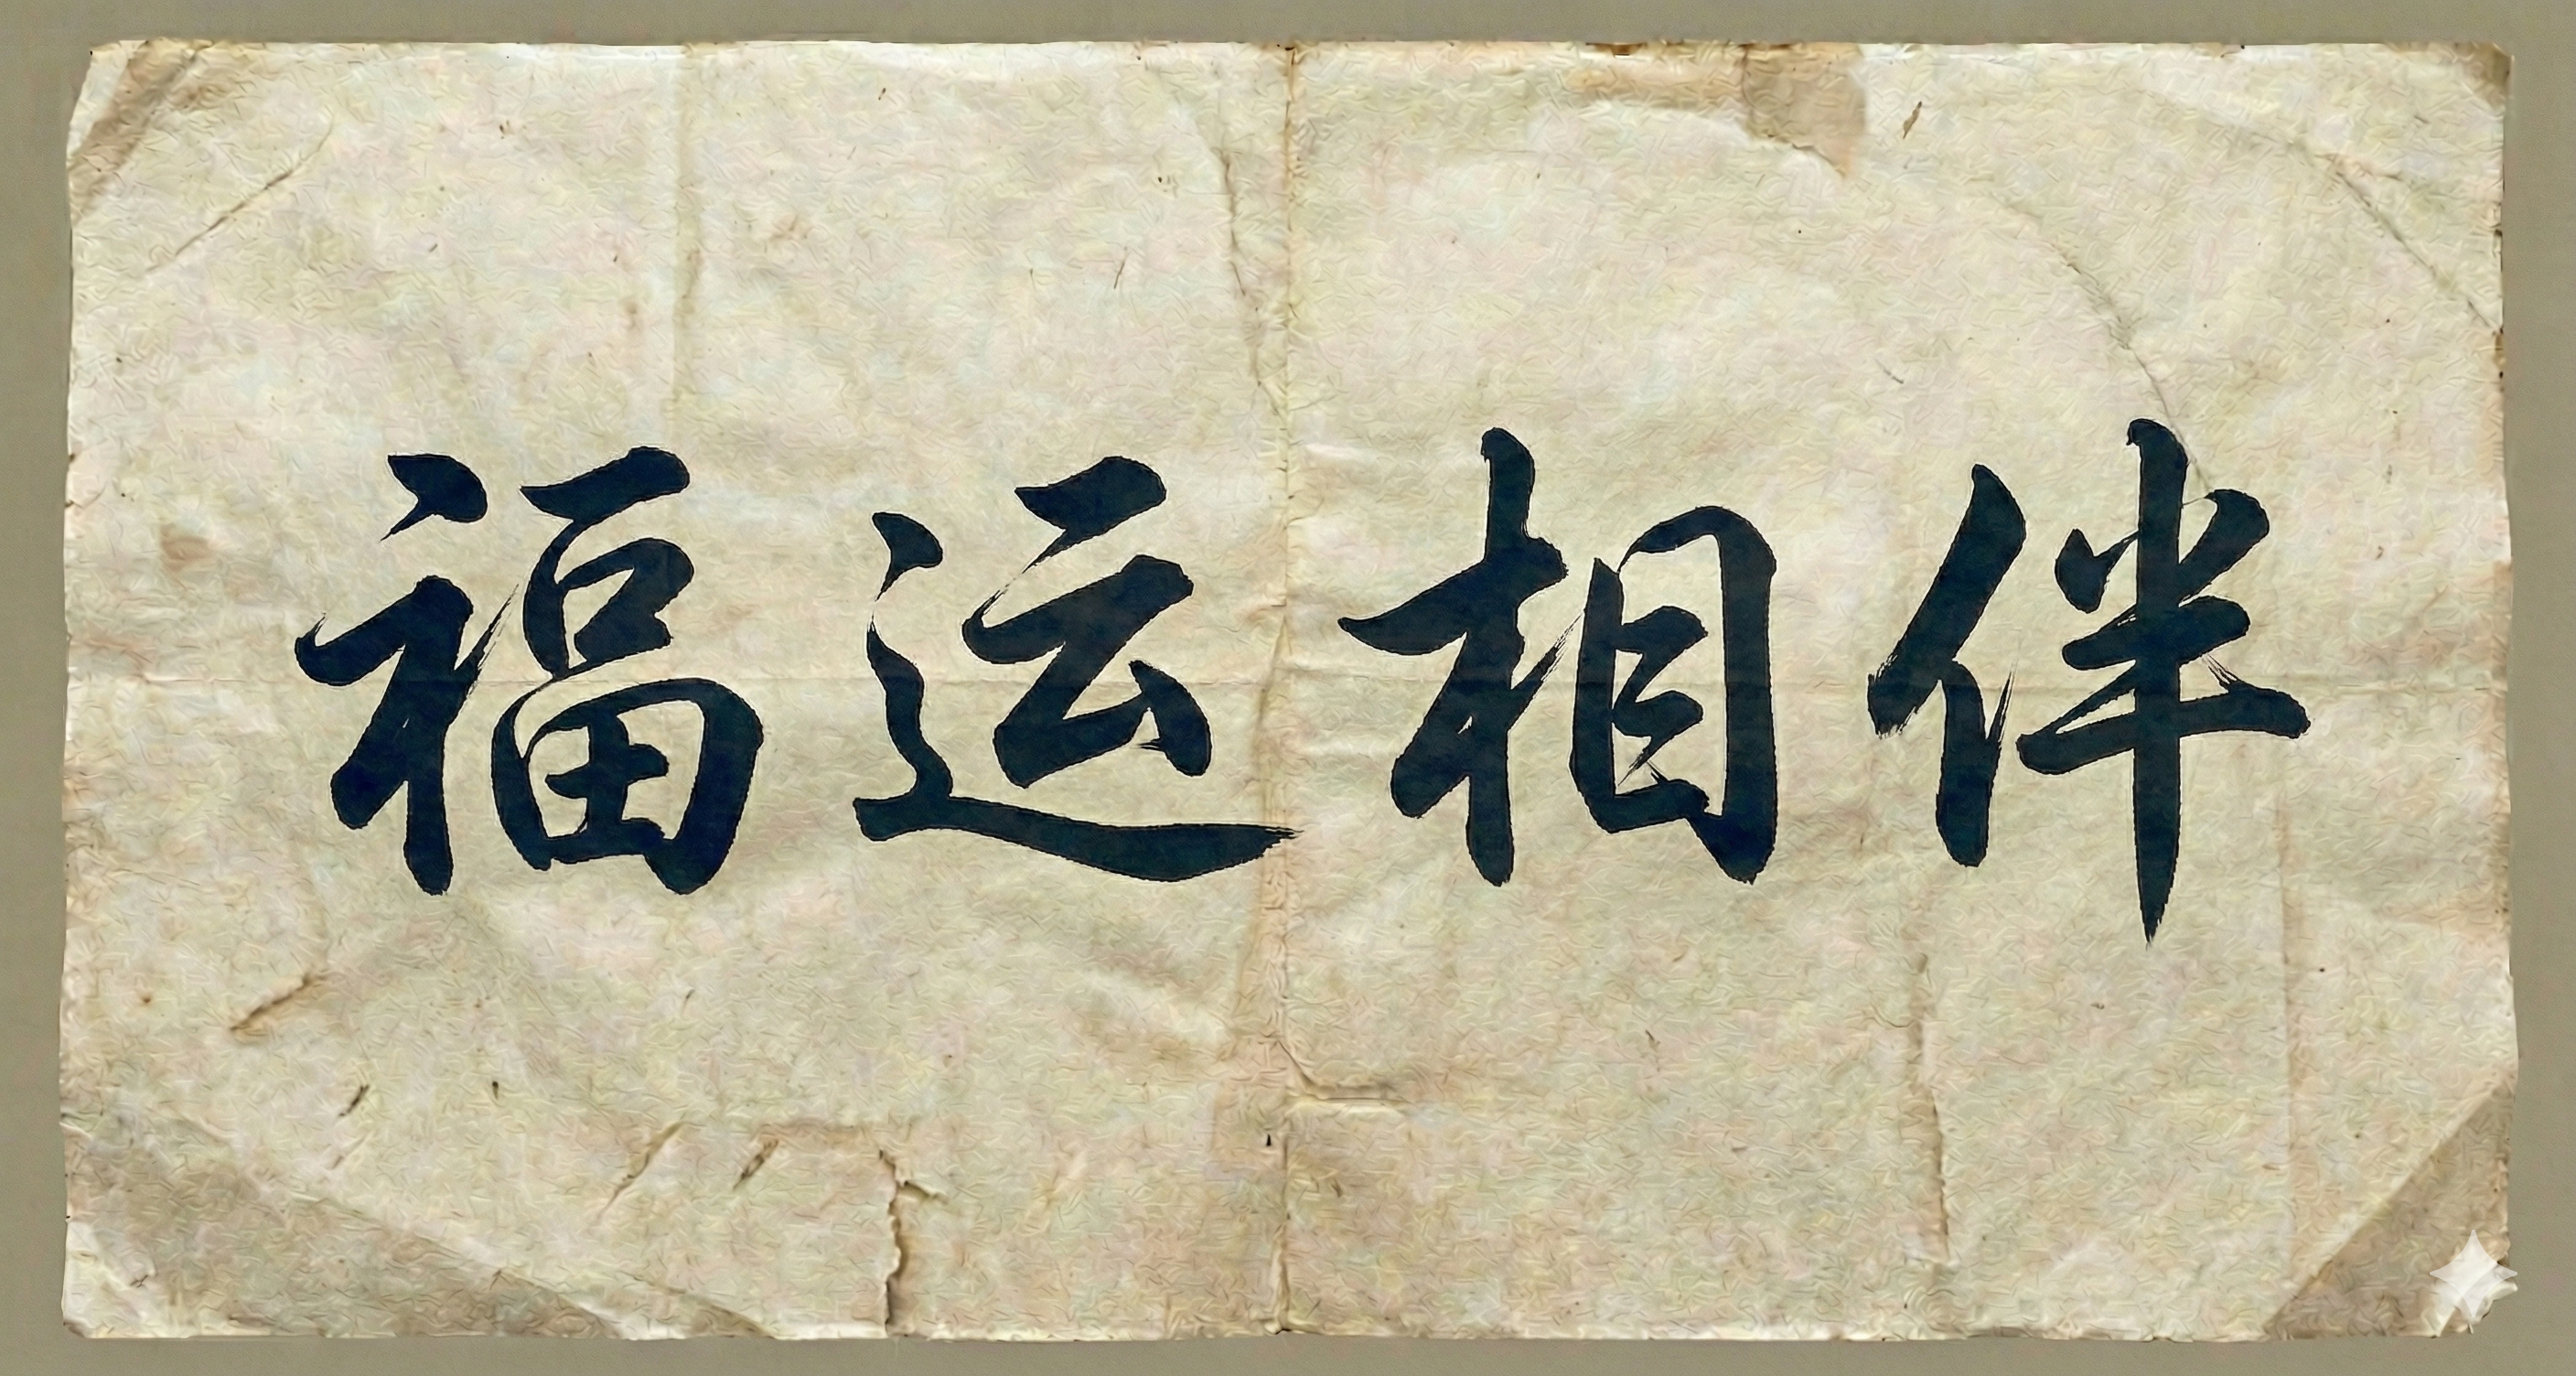 福运相伴